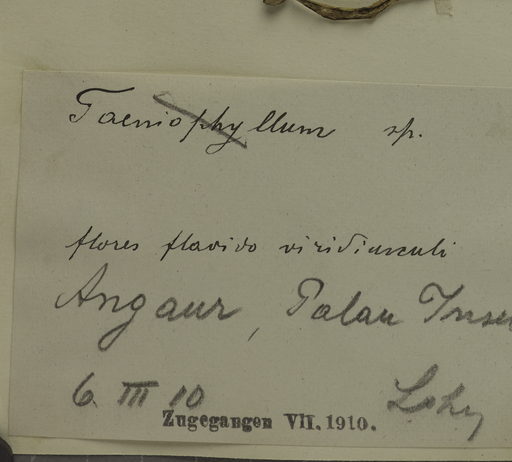 Taeniophyllum sp.
flores flavido viridiusculi
Angaur, Palau Inse
6 III 10
Zugegangen VII. 1910.